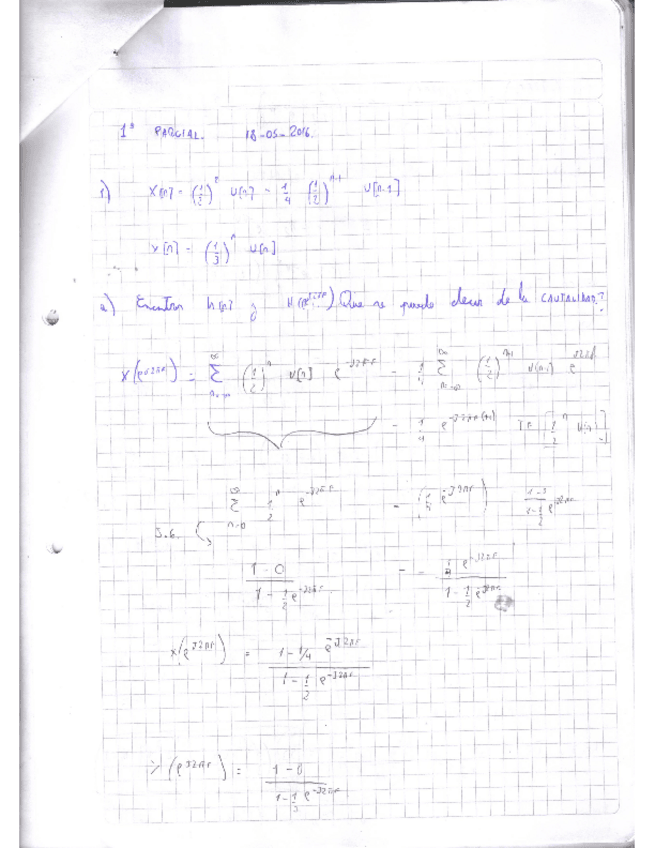 1º PARCIAL. 18-05-2016.
1) x[n] = (1/2)^n u[n] - 1/4 (1/2)^{n-1} u[n-1]
x[n] = (1/3)^n u[n]
a) Encontrar h[n] y Que se puede decir de la CAUSALIDAD?
X(e^{j2πF}) = Σ_{n=-∞}^{∞} (1/2)^n u[n] e^{-j2πF} - 1/4 Σ_{n=-∞}^{∞} (1/2)^{n-1} u[n-1]
- 1/4 e^{-j2πF}
Σ_{n=0}^{∞} 1/2^n e^{-j2πF} - (1/4 e^{-j2πF}) / (1 - 1/2 e^{-j2πF})
S.G.
(1 - 0) / (1 - 1/2 e^{-j2πF}) - - (1/4 e^{-j2πF}) / (1 - 1/2 e^{-j2πF})
X(e^{j2πF}) = (1 - 1/4 e^{-j2πF}) / (1 - 1/2 e^{-j2πF})
Y(e^{j2πF}) = (1 - 0) / (1 - 1/3 e^{-j2πF})